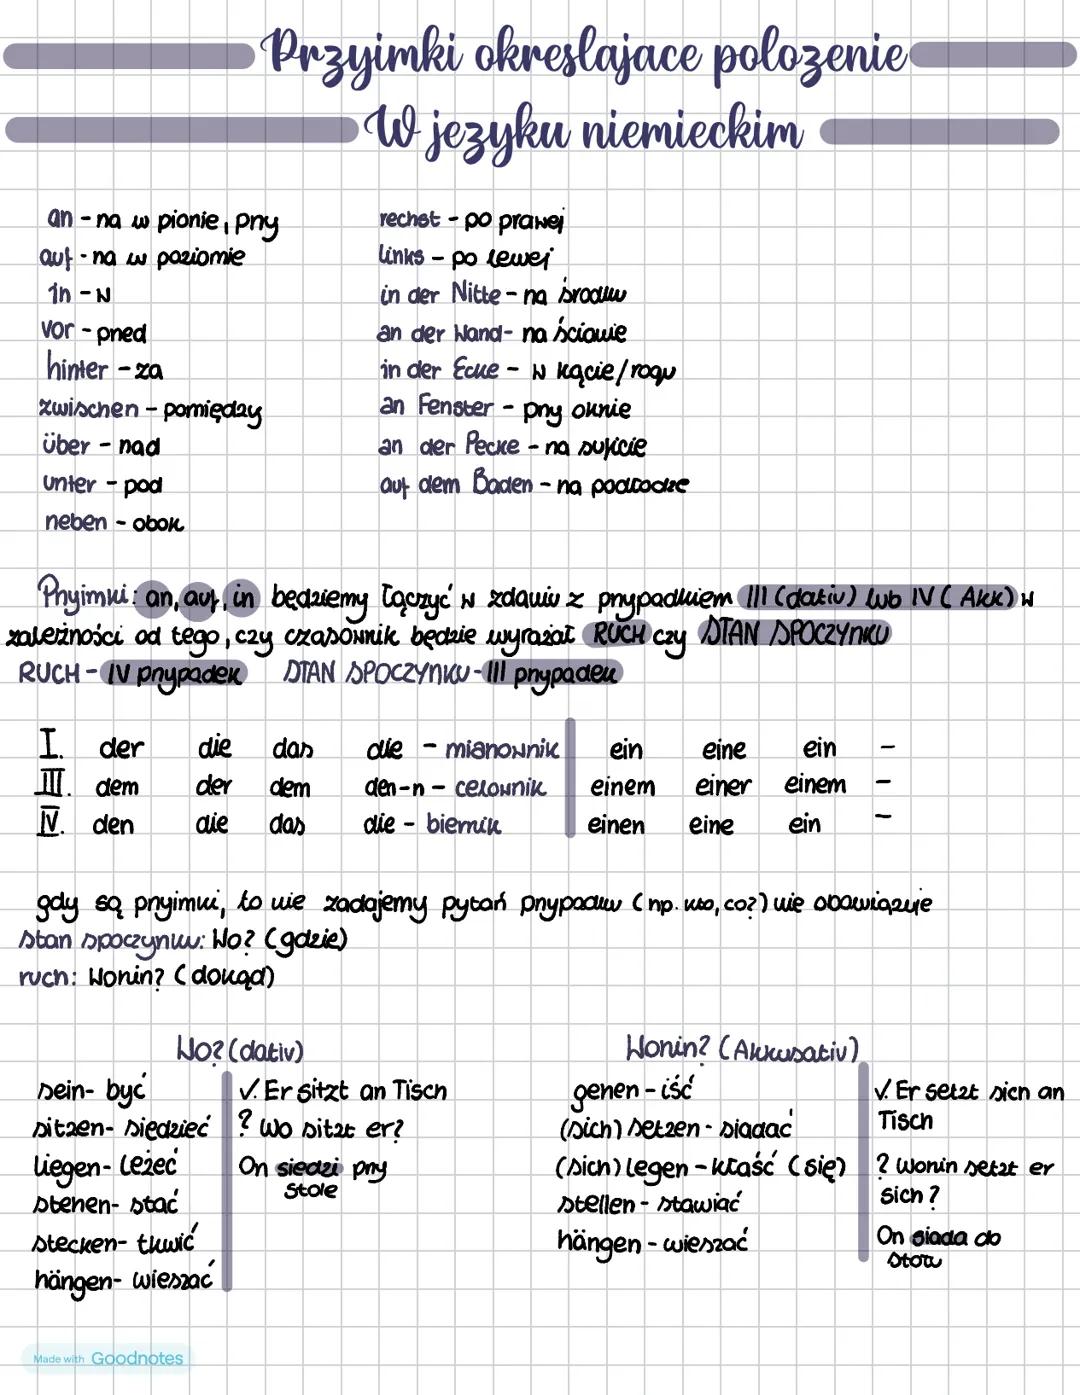 Przyimki okreslajace polozenie
W jezyku niemieckim
an - na w pionie, przy
auf - na w poziomie
in - w
vor - przed
hinter - za
zwischen - pomiędzy
über - nad
unter - pod
neben - obok
rechst - po prawej
links - po lewej
in der Mitte - na środku
an der Wand - na ścianie
in der Ecke - w kącie/rogu
an Fenster - przy oknie
an der Decke - na suficie
auf dem Baden - na podłodze
Przyimki: an, auf, in będziemy łączyć w zdaniu z przypadkiem III (dativ) lub IV (Akk) w
zależności od tego, czy czasownik będzie wyrażał RUCH czy STAN SPOCZYNKU
RUCH - IV przypadek STAN SPOCZYNKU - III przypadek
I. der die das die - mianownik ein eine ein -
III. dem der dem den-n - celownik einem einer einem -
IV. den die das die - biernik einen eine ein -
gdy są przyimki, to nie zadajemy pytań przypadku (np. kto, co?) nie obowiązuje
stan spoczynku: Wo? (gdzie)
ruch: Wohin? (dokąd)
Wo? (dativ)
sein - być
sitzen - siedzieć
liegen - leżeć
stehen - stać
stecken - tkwić
hängen - wieszać
✓. Er sitzt an Tisch
? Wo sitzt er?
On siedzi przy
stole
Wohin? (Akkusativ)
gehen - iść
(sich) setzen - siadać
(sich) legen - kłaść (się)
stellen - stawiać
hängen - wieszać
✓. Er setzt sich an
Tisch
? Wohin setzt er
sich?
On siada do
stołu
Made with Goodnotes